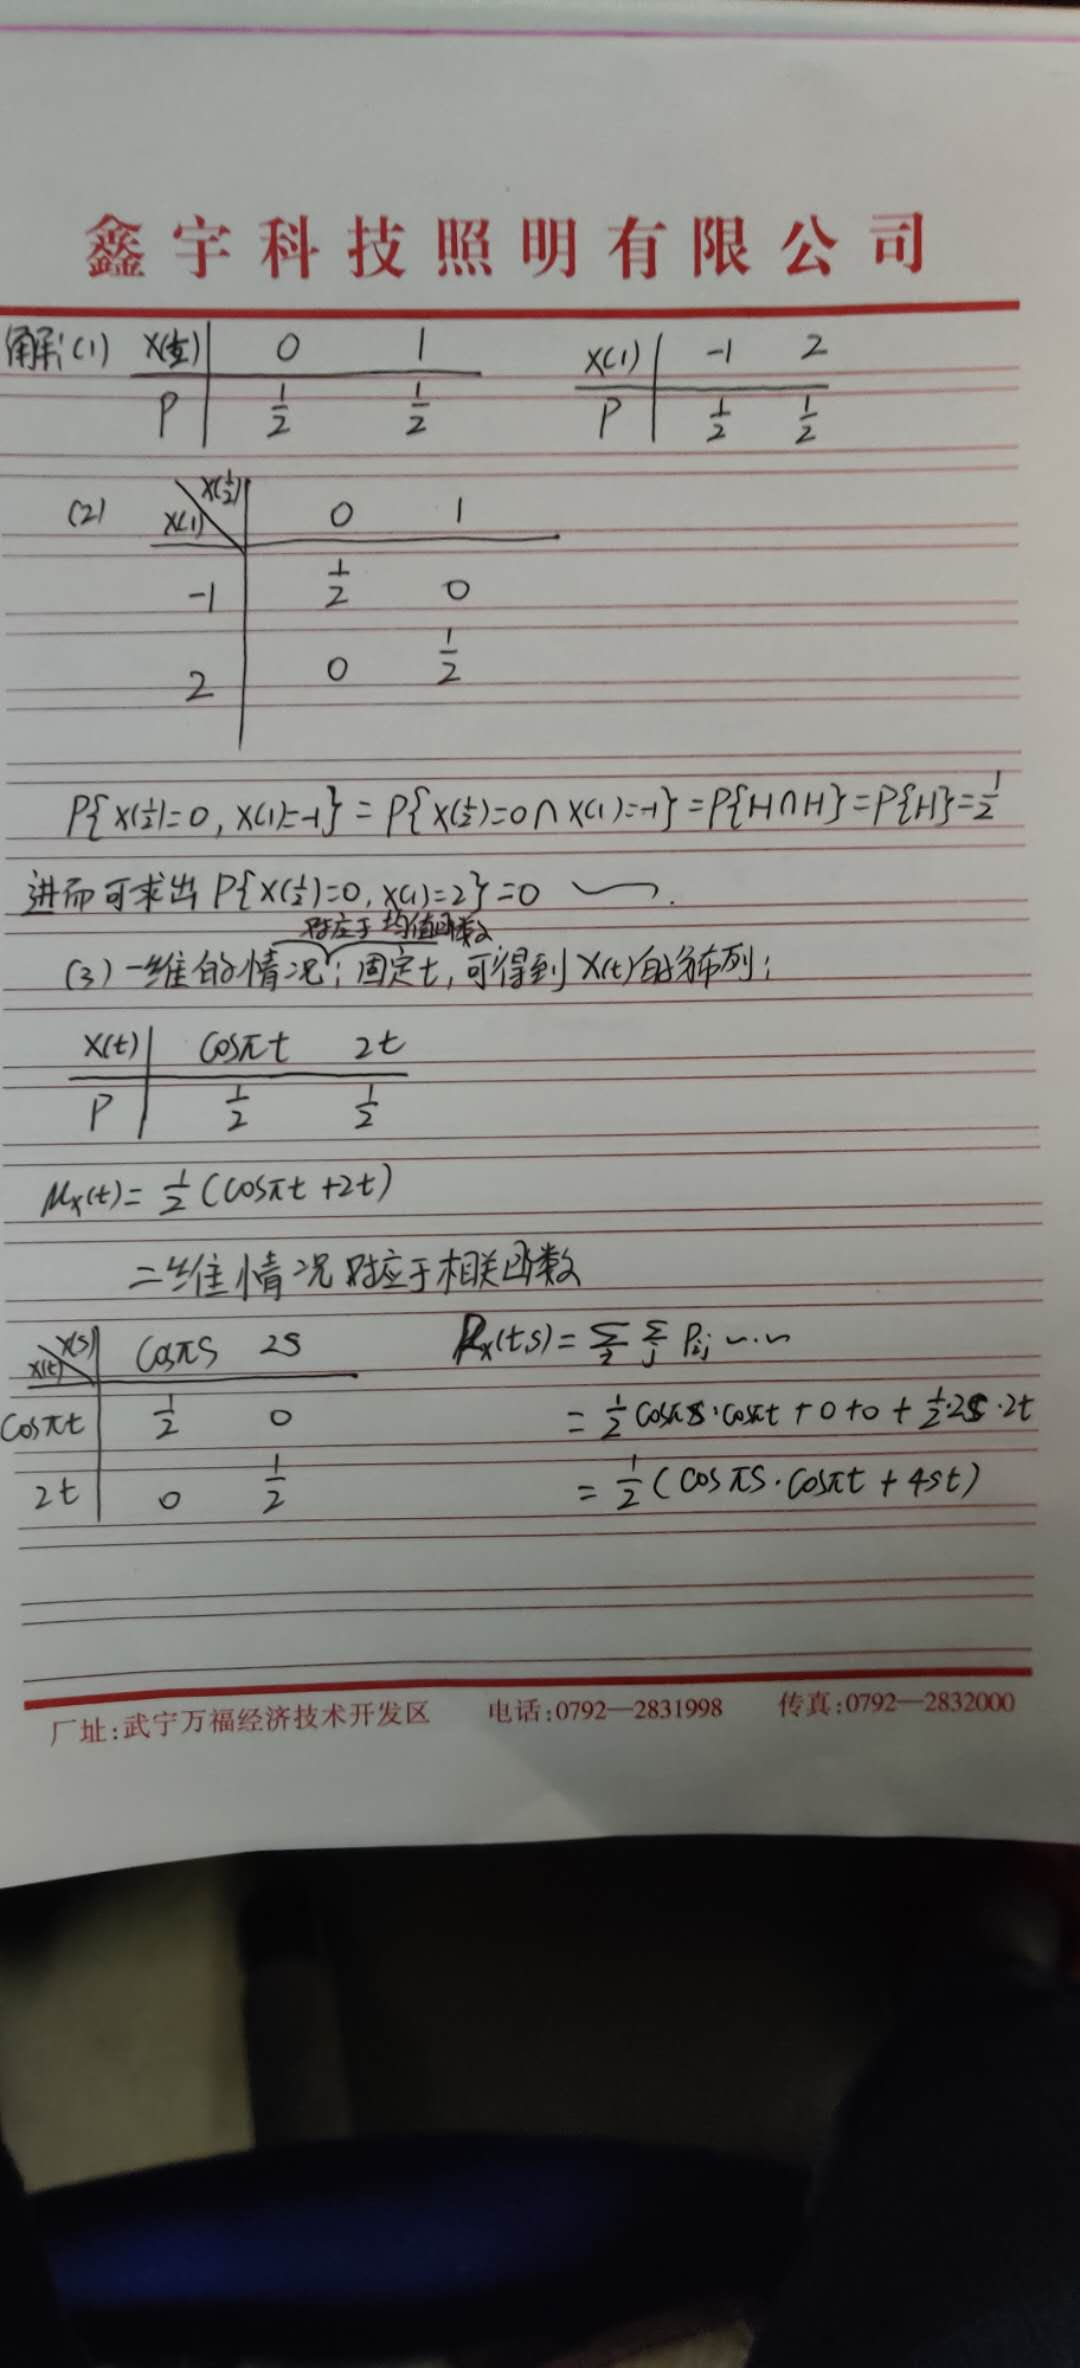 鑫宇科技照明有限公司
解:(1) X(½) | 0 1 X(1) | -1 2
P | 1/2 1/2 P | 1/2 1/2
(2) X(1) \ X(½) | 0 1
-1 | 1/2 0
2 | 0 1/2
P{X(½)=0, X(1)=-1} = P{X(½)=0∩X(1)=-1} = P{H∩H} = P{H} = 1/2
进而可求出 P{X(½)=0, X(1)=2} = 0
对应于均值函数
(3) 一维的情况: 固定t, 可得到X(t)的分布列:
X(t) | cosπt 2t
P | 1/2 1/2
μx(t) = 1/2 (cosπt + 2t)
二维情况对应于相关函数
X(t) \ X(s) | cosπs 2s Rx(t,s) = Σi Σj Pij ⋯
cosπt | 1/2 0 = 1/2 cosπs·cosπt + 0 + 0 + 1/2·2s·2t
2t | 0 1/2 = 1/2 (cosπs·cosπt + 4st)
厂址:武宁万福经济技术开发区 电话:0792—2831998 传真:0792—2832000